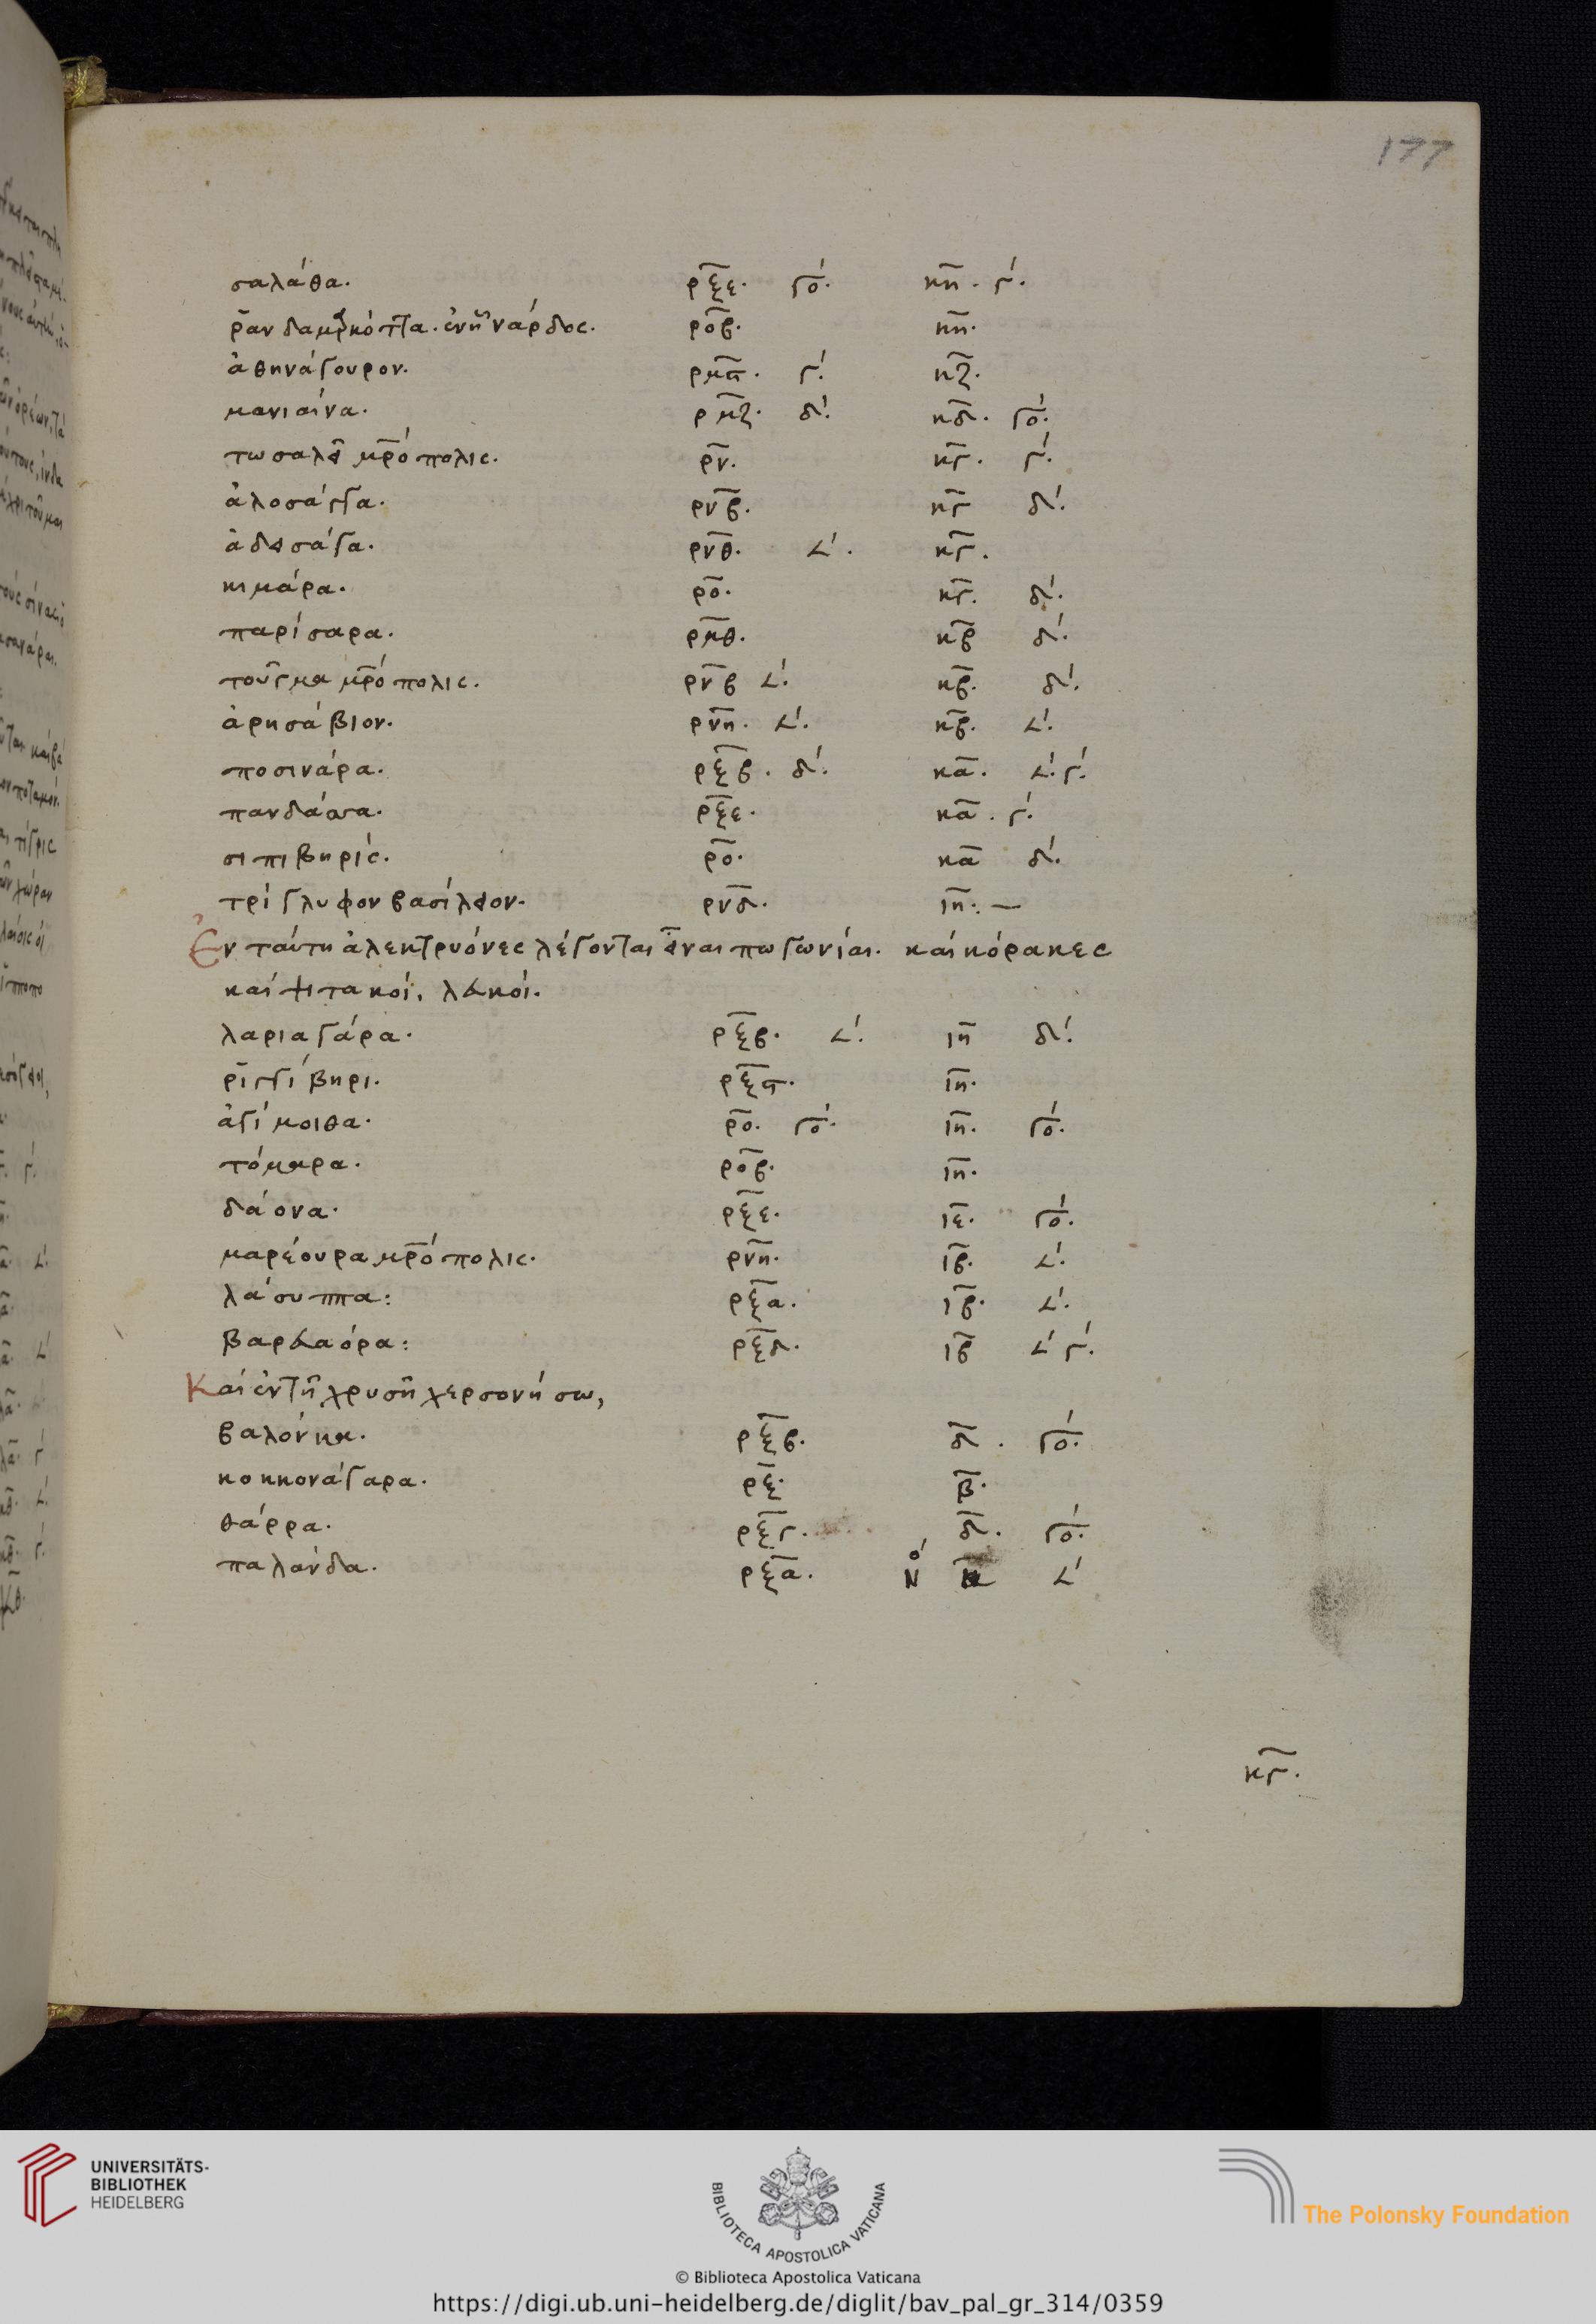 177
σαλάθα. ρξε. γο. κη. γ.
ῥανδαμαρκόττα. ἐν ἧ νάρδος. ροβ. κη.
ἀθηνάγουρον. ρμϛ. γ. κζ.
μανιαίνα. ρμζ. δ. κδ. γο.
τωσαλεῖ μρόπολις. ρν. κγ. γ.
ἀλοσάγγα. ρνβ. κγ δ.
ἀδεισάγα. ρνθ. 𐅵. κγ.
κιμάρα. ρο. κγ. δ.
παρίσαρα. ρμθ. κβ δ.
τοῦγμα μρόπολις. ρνβ 𐅵. κβ. δ.
ἀρησάβιον. ρνη. 𐅵. κβ. 𐅵.
ποσινάρα. ρξβ. δ. κα. 𐅵. γ.
πανδάσα. ρξε. κα. γ.
σιπιβηρίς. ρο. κα δ.
τρίγλυφον βασίλειον. ρνδ. ιη:
Ἐν ταύτη ἀλεκτρυόνες λέγονται εἶναι πωγωνίαι. καὶ κόρακες
καὶ ψιτακοί, λευκοί.
λαριαγάρα. ρξβ. 𐅵. ιη δ.
ῥιγγίβηρι. ρξϛ. ιη.
ἀγίμοιθα. ρο. γο. ιη. γο.
τόμαρα. ροβ. ιη.
δάονα. ρξε. ιε. γο.
μαρέουρα μρόπολις. ρνη. ιβ. 𐅵.
λάσυππα: ρξα. ιβ. 𐅵.
βαρευαόρα: ρξδ. ιβ 𐅵 γ.
Καὶ ἐν τῆ χρυσῆ χερσονήσω,
βαλόνκα. ρξβ. δ. γο.
κοκκονάγαρα. ρξ. β.
θάρρα. ρξγ. δ. γο.
παλάνδα. ρξα. Νο 𐅵
κγ.
UNIVERSITÄTS-
BIBLIOTHEK
HEIDELBERG
BIBLIOTECA APOSTOLICA VATICANA
The Polonsky Foundation
© Biblioteca Apostolica Vaticana
https://digi.ub.uni-heidelberg.de/diglit/bav_pal_gr_314/0359